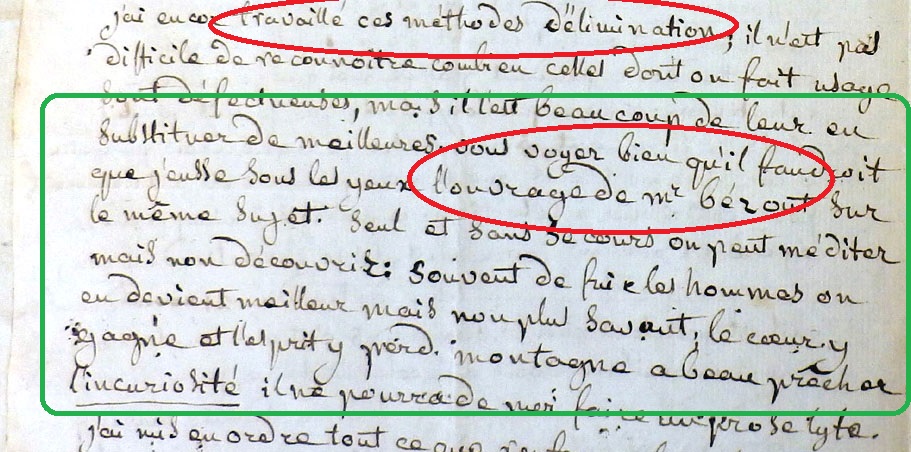 j'ai encor travaillé ces méthodes d'élimination; il n'est pas
difficile de reconnoître combien celles dont on fait usage
sont défectueuses, mais il l'est beaucoup de leur en
substituer de meilleures. vous voyez bien qu'il faudroit
que j'eusse sous les yeux l'ouvrage de mr bézout sur
le même sujet. Seul et sans secours on peut méditer
mais non découvrir: souvent de fuir les hommes on
en devient meilleur mais non plus savant, le cœur y
gagne et l'esprit y perd. montagne a beau prêcher
l'incuriosité il ne pourra de moi faire un prosélyte.
j'ai mis en ordre tout ce que